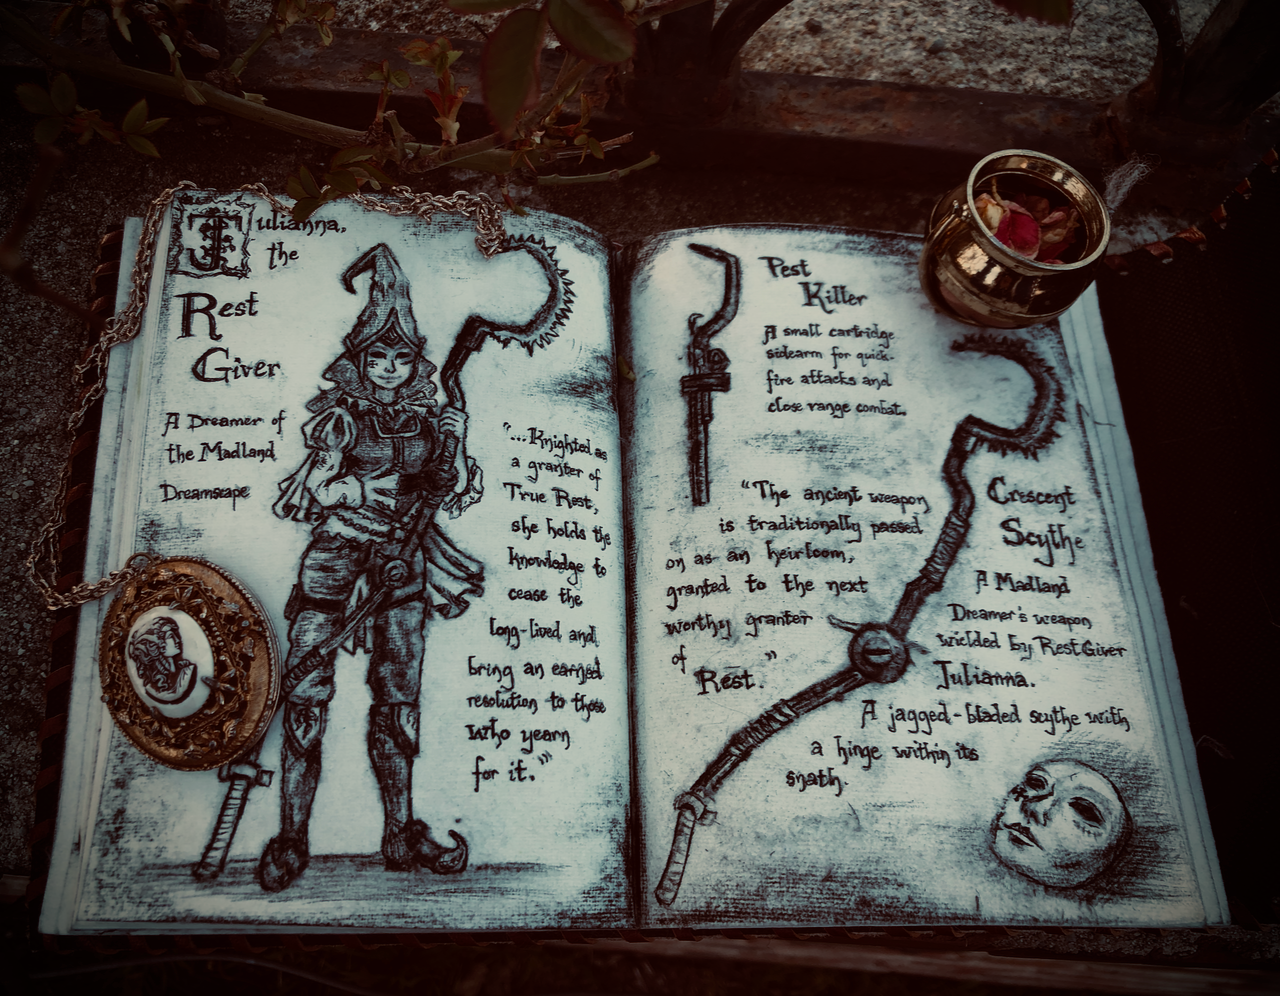 Julianna,
the
Rest
Giver
A Dreamer of
the Madland
Dreamscape
"...Knighted as
a granter of
True Rest,
she holds the
knowledge to
cease the
long-lived and
bring an earned
resolution to those
who yearn
for it."
Pest
Killer
A small cartridge
sidearm for quick-
fire attacks and
close range combat.
"The ancient weapon
is traditionally passed
on as an heirloom,
granted to the next
worthy granter
of
Rest."
Crescent
Scythe
A Madland
Dreamer's weapon
wielded by Rest Giver
Julianna.
A jagged-bladed scythe with
a hinge within its
snath.